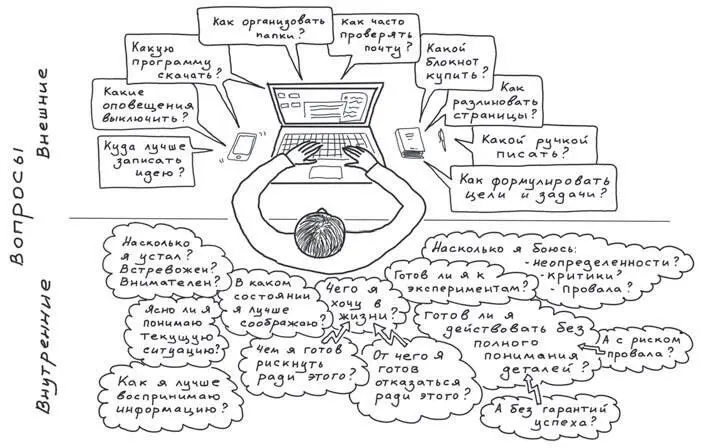 Вопросы
Внешние
Внутренние
Как организовать
папки?
Как часто
проверять
почту?
Какую
программу
скачать?
Какой
блокнот
купить?
Какие
оповещения
выключить?
Как
разлиновать
страницы?
Куда лучше
записать
идею?
Какой ручкой
писать?
Как формулировать
цели и задачи?
Насколько
я устал?
Встревожен?
Внимателен?
В каком
состоянии
я лучше
соображаю?
Чего я
хочу в
жизни?
Готов ли я к
экспериментам?
Насколько я боюсь:
-неопределенности?
-критики?
- Провала?
Ясно ли я
понимаю
текущую
ситуацию?
Чем я готов
рискнуть
ради этого?
От чего я
готов
отказаться
ради этого?
Готов ли я
действовать без
полного
понимания
деталей?
А с риском
провала?
Как я лучше
воспринимаю
информацию?
А без гарантий
успеха?